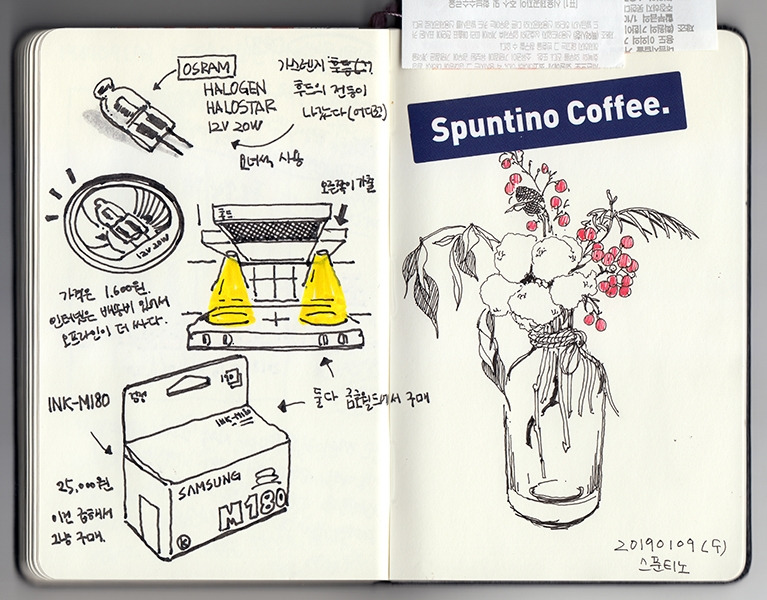 OSRAM
HALOGEN
HALOSTAR
12V 20W
가스렌지
후드의 전등이
나갔다
요녀석 사용
오른쪽이 가출
후드
12V 20W
가격은 1,600원.
인터넷은 배송비 있어서
오프라인이 더 싸다.
INK-M180
검정
INK-M180
SAMSUNG
M180
K
둘다 금호월드에서 구매
25,000원
이건 급해서
그냥 구매.
Spuntino Coffee.
20190109(수)
스푼티노